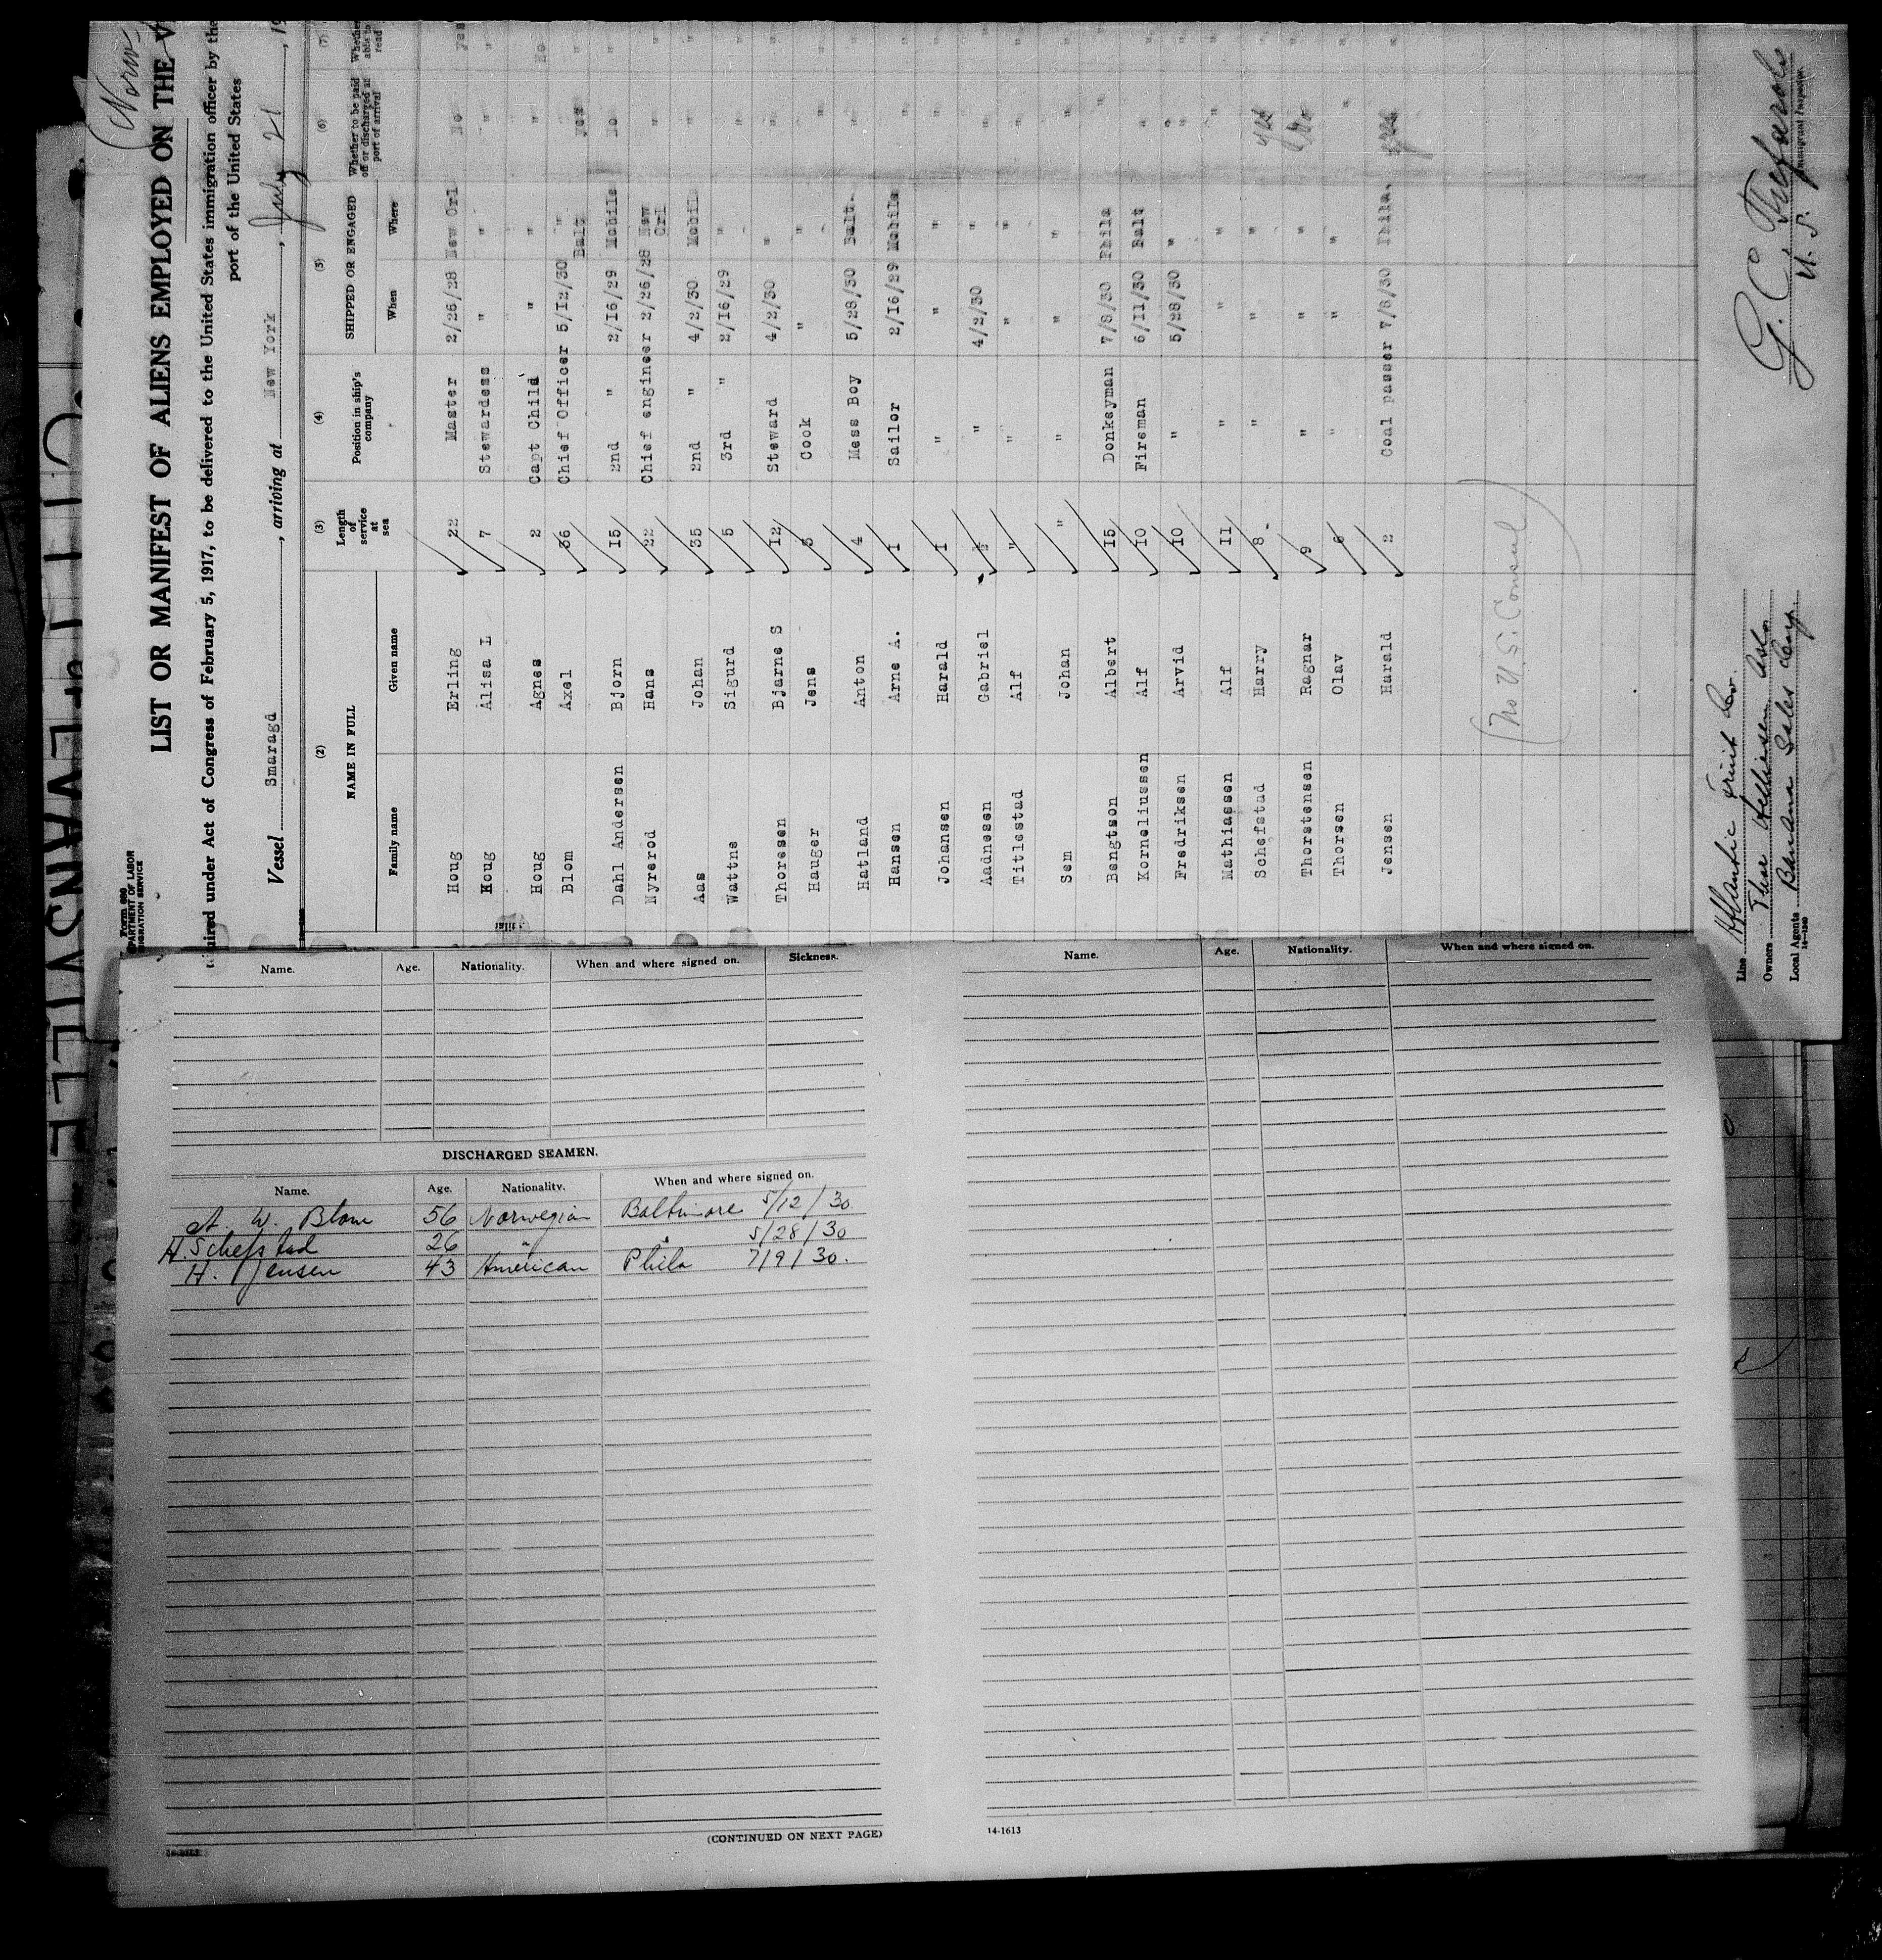 (Norw
LIST OR MANIFEST OF ALIENS EMPLOYED ON THE V
Form 680
DEPARTMENT OF LABOR
IMMIGRATION SERVICE
uired under Act of Congress of February 5, 1917, to be delivered to the United States immigration officer by the
port of the United States
Vessel Smaragd, arriving at New York, July 21, 19
(2) (3) (4) (5) (6) (7)
NAME IN FULL Length of service at sea Position in ship's company SHIPPED OR ENGAGED Whether to be paid off or discharged at port of arrival Whether able to read
Family name Given name When Where
Houg Erling 22 Master 2/26/28 New Orl No yes
Houg Alisa L 7 Stewardess " " " "
Houg Agnes 2 Capt Child " " " No
Blom Axel 36 Chief Officer 5/12/30 " Balt yes "
Dahl Andersen Bjorn 15 2nd " 2/16/29 Mobile No "
Nyrerod Hans 22 Chief engineer 2/26/28 New Orl " "
Aas Johan 35 2nd " 4/2/30 Mobile " "
Wattne Sigurd 5 3rd " 2/16/29 " " "
Thoresen Bjarne S 12 Steward 4/2/30 " " "
Hauger Jens 5 Cook " " " "
Hatland Anton 4 Mess Boy 5/28/30 Balt. " "
Hansen Arne A. 1 Sailor 2/16/29 Mobile " "
Johansen Harald 1 " " " " "
Aadnesen Gabriel ½ " 4/2/30 " " "
Titlestad Alf " " " " " "
Sem Johan " " " " " "
Bengtson Albert 15 Donkeyman 7/8/30 Phila " "
Korneliussen Alf 10 Fireman 6/11/30 Balt " "
Fredriksen Arvid 10 " 5/28/30 " " "
Mathiassen Alf 11 " " " " "
Schefstad Harry 8 " " " yes "
Thorstensen Ragnar 9 " " " No "
Thorsen Olav 6 " " " " "
Jensen Harald 2 Coal passer 7/8/30 Phila. yes "
(No U.S. Consul)
Line Atlantic Fruit Co.
Owners Oslo
Local Agents Banana Sales Corp.
14-1240
G. C.
U. S. Immigrant Inspector
Name. Age. Nationality. When and where signed on. Sickness.
DISCHARGED SEAMEN.
Name. Age. Nationality. When and where signed on.
A. W. Blom 56 Norwegian Baltimore 5/12/30
H. Schefstad 26 " " 5/28/30
H. Jensen 43 American Phila 7/9/30.
(CONTINUED ON NEXT PAGE)
Name. Age. Nationality. When and where signed on.
14-1613
CITY of EVANSVILLE